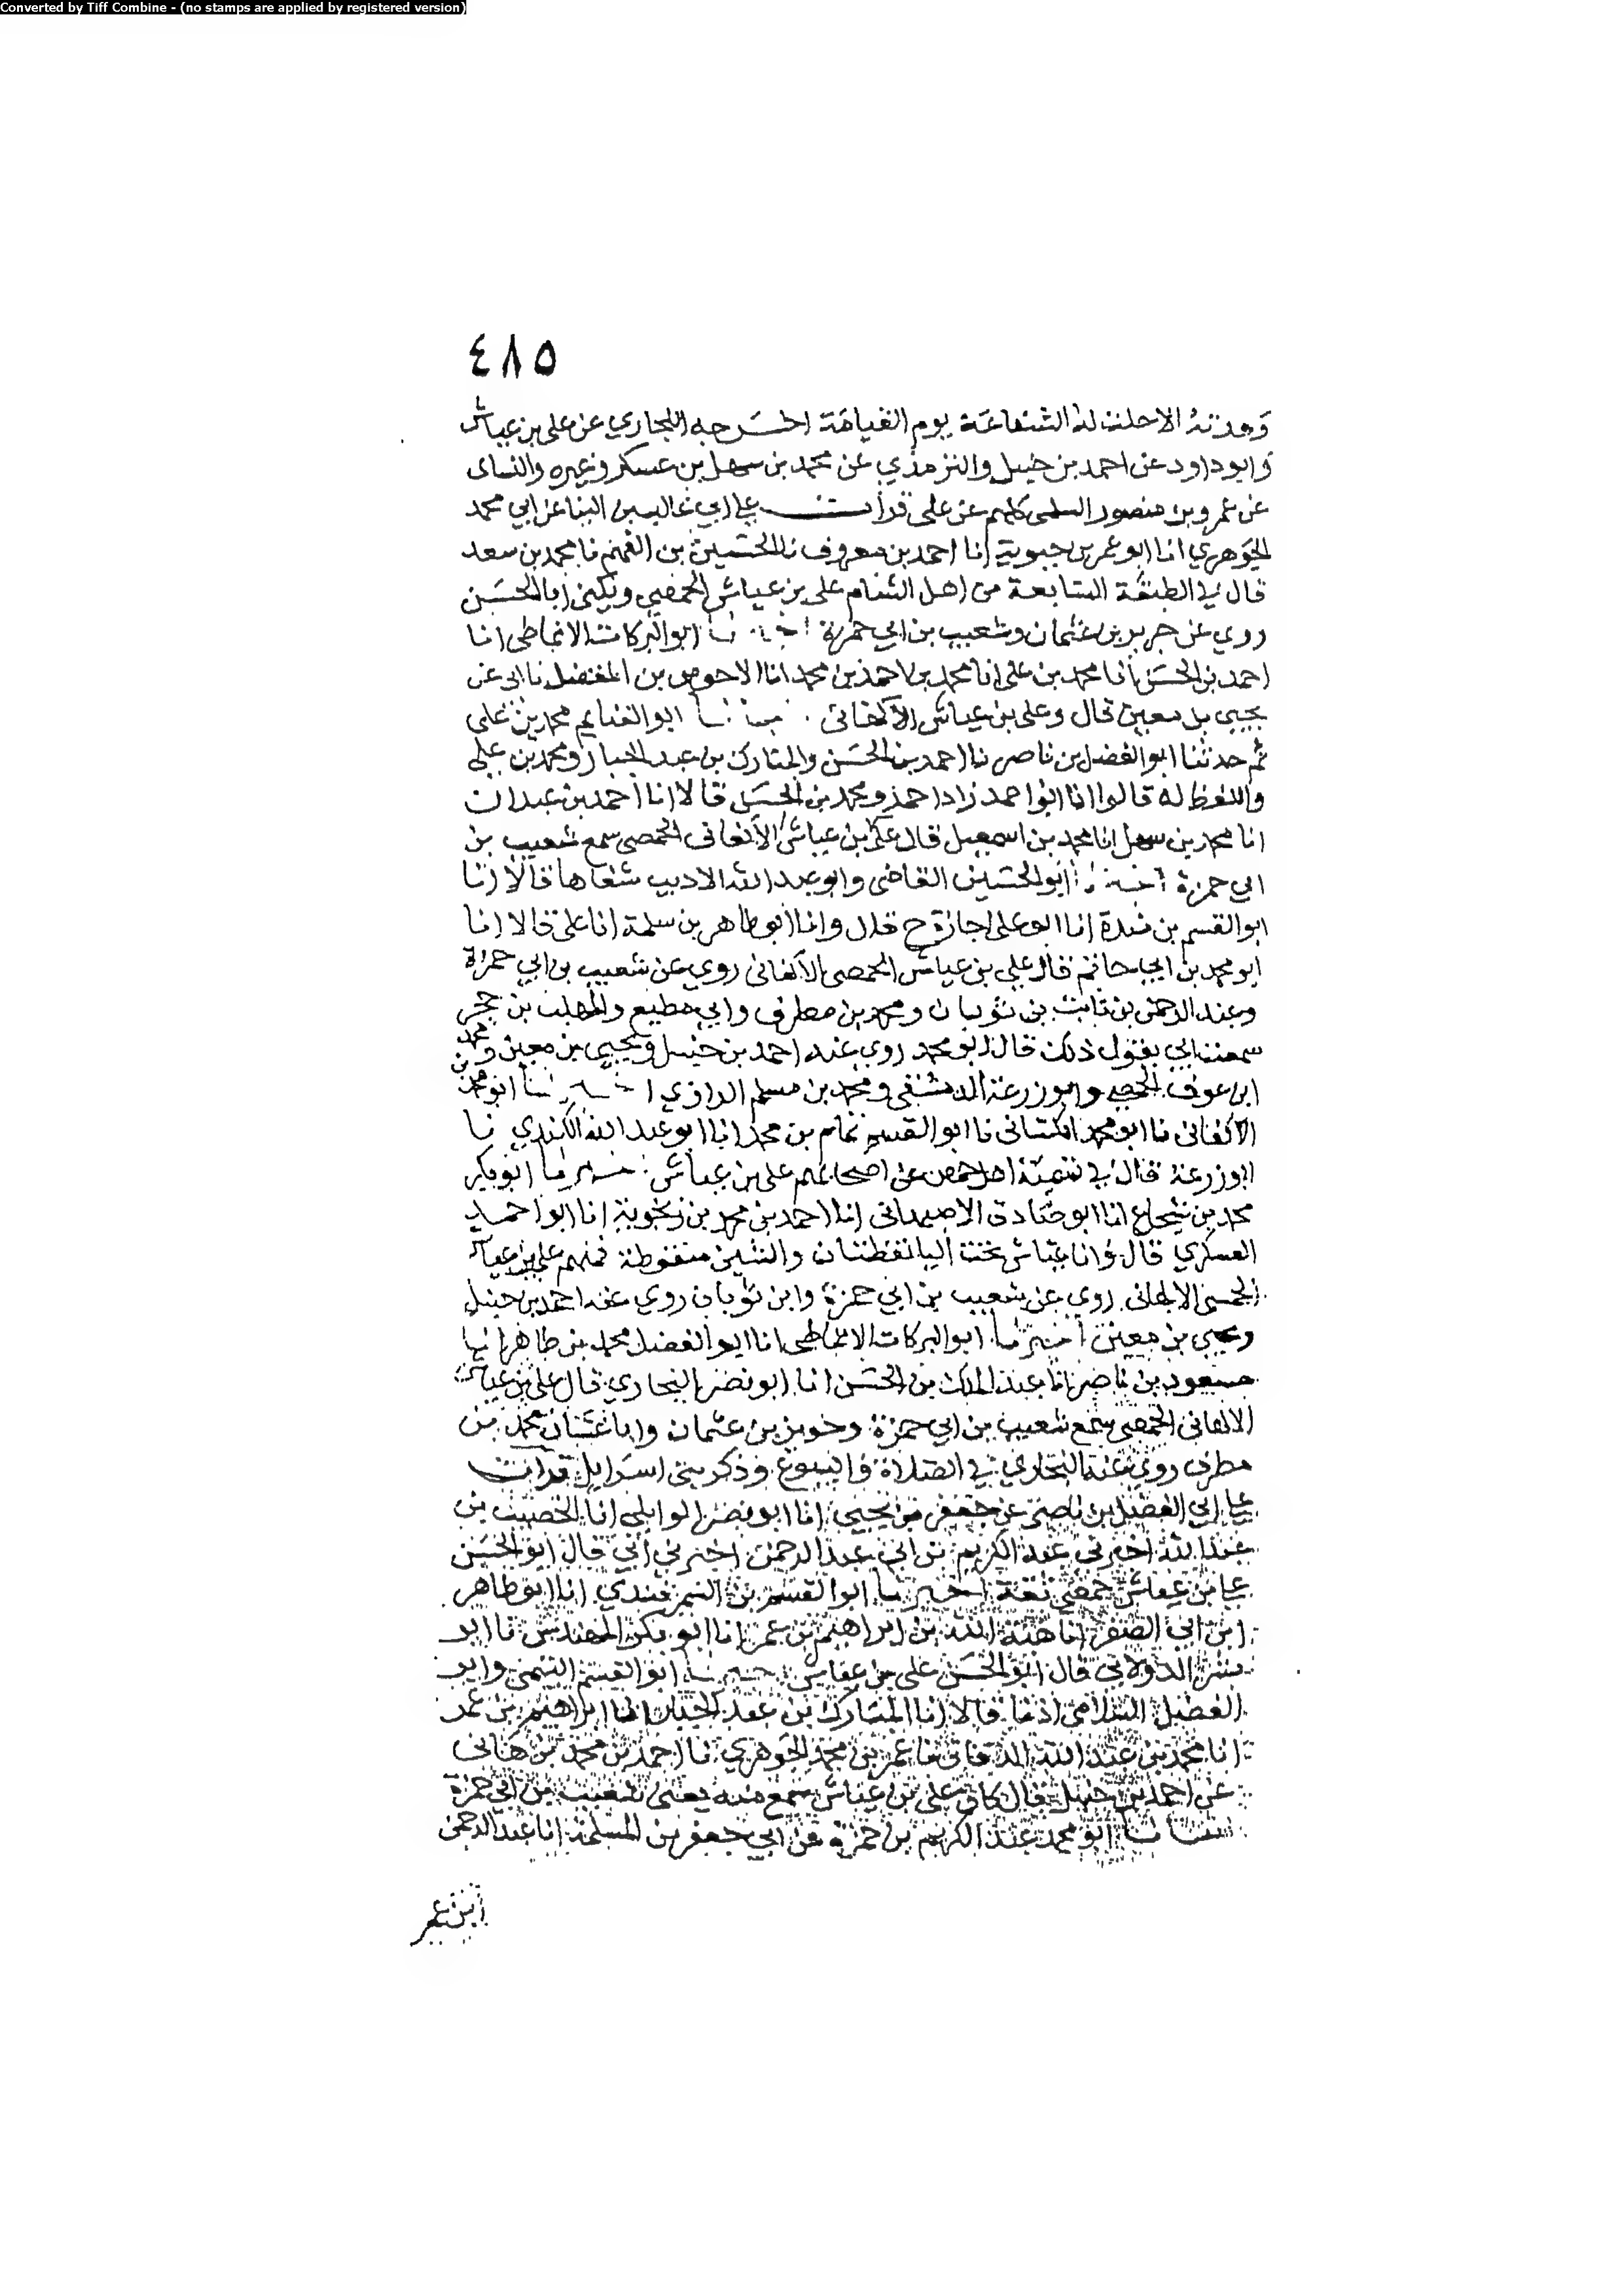 Converted by Tiff Combine - (no stamps are applied by registered version)
٤٨٥
وعدته الا حلت له الشفاعة يوم القيامة اخرجه البخاري عن علي بن عياش
وابو داود عن احمد بن حنبل والترمذي عن محمد بن سهل بن عسكر وغيره والنساى
عن عمرو بن منصور السلمى كلهم عن على قرأت على ابي غالب بن البنا عن ابي محمد
الجوهري انا ابو عمر بن حيوية انا احمد بن معروف نا الحسين بن الفهم نا محمد بن سعد
قال في الطبقة السابعة من اهل الشام على بن عياش الحمصي ويكنى ابا الحسن
روي عن حريز بن عثمان وشعيب بن ابي حمزة ابو البركات الانماطى انا
احمد بن الحسن انا محمد بن على انا محمد بن احمد بن محمد انا الاحوص بن المفضل نا ابى عن
يحيى بن معين قال وعلى بن عياش ابو الغنايم محمد بن على
ثم حدثنا ابو الفضل بن ناصر نا احمد بن الحسن والمبارك بن عبد الجبار ومحمد بن على
واللفظ له قالوا انا ابو احمد زاد احمد ومحمد بن الحسن قالا انا احمد بن عبدان
انا محمد بن سهل انا محمد بن اسمعيل قال على بن عياش الالهانى الحمصى سمع شعيب بن
ابي حمزة ابو الحسين القاضى وابو عبد الله الاديب شفاها قالا انا
ابو القسم بن مندة انا ابو على اجازة ح قال وانا ابو طاهر بن سلمة انا على قالا انا
ابو محمد بن ابي حاتم قال على بن عياش الحمصى الالهانى روي عن شعيب بن ابي حمزة
وعبد الرحمن بن ثابت بن ثوبان ومحمد بن مطرف وابي مطيع والمهلب بن حجر
سمعت ابي يقول ذلك قال ابو محمد روى عنه احمد بن حنبل ويحيى بن معين ومحمد
ابن عوف الحمصي وابو زرعة الدمشقى ومحمد بن مسلم الرازي ابو محمد بن
الاكفانى نا ابو محمد الكتانى نا ابو القسم تمام بن محمد انا ابو عبد الله الكندي نا
ابو زرعة قال في تسمية اهل حمص عن اصحابهم على بن عياش ابو بكر
محمد بن شجاع انا ابو صادق الاصبهانى انا احمد بن محمد بن زنجوية انا ابو احمد
العسكري قال واما عياش تحت اليا نقطتان والشين منقوطة فمنهم على بن عياش
الحمصى الالهانى روي عن شعيب بن ابي حمزة وابن ثوبان روي عنه احمد بن حنبل
ويحيى بن معين اخبرنا ابو البركات الانماطى انا ابو الفضل محمد بن طاهر انا
مسعود بن ناصر انا عبد الملك بن الحسن انا ابو نصر البخاري قال على بن عياش
الالهانى الحمصى سمع شعيب بن ابي حمزة وحريز بن عثمان وابا غسان محمد بن
مطرف روى عنه البخاري في الصلاة والبيوع وذكر بنى اسرايل قرات
على ابي الفضل بن ناصر عن جعفر بن يحيى انا ابو نصر الوايلى انا الخصيب بن
عبد الله اخبرنى عبد الكريم بن ابى عبد الرحمن اخبرني ابي قال ابو الحسن
على بن عياش حمصى ثقة اخبرنا ابو القسم بن السمرقندي انا ابو طاهر
ابن ابي الصقر انا هبة الله بن ابراهيم بن عمر انا ابو بكر المهندس نا ابو
بشر الدولابي قال ابو الحسن على بن عياش ابو القسم التيمى وابو
الفضل السلامى اذنا قالا انا المبارك بن عبد الجبار انا ابراهيم بن عمر
انا محمد بن عبد الله الدقاق نا عمر بن محمد الجوهري نا احمد بن محمد بن هانى
عن احمد بن حنبل قال كان على بن عياش سمع منه يعنى شعيب بن ابي حمزة
ابو محمد عبد الكريم بن حمزة عن ابي جعفر بن المسلمة انا عبد الرحمن
ابن عمر